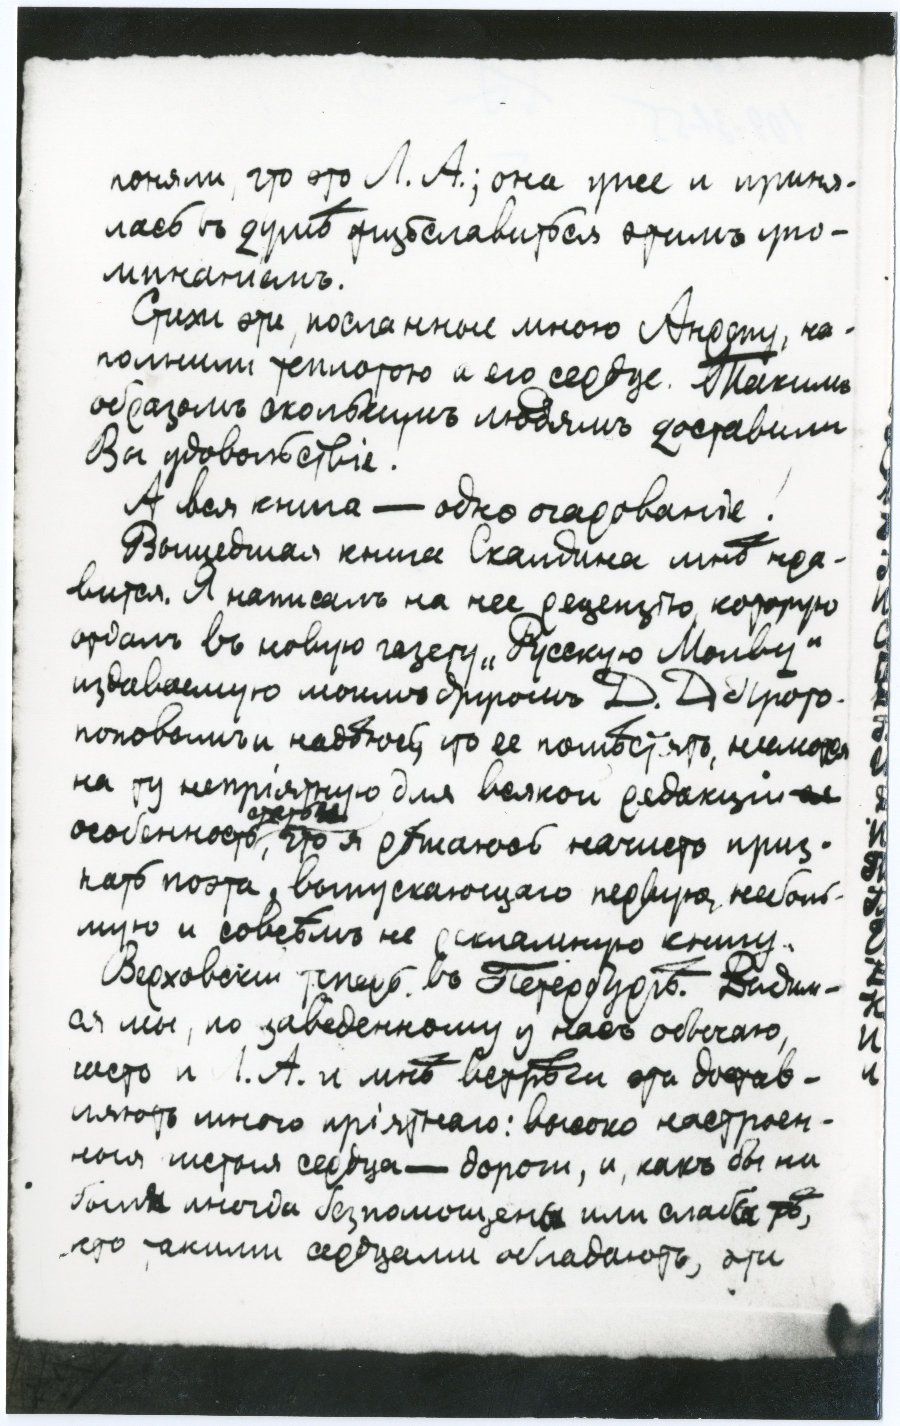 поняли, что это Л. А.; она уже и приня-
лась въ душѣ тщеславиться этимъ упо-
минаніемъ.
Стихи эти, посланные мною Андру, на-
полнили теплотою и его сердце. Такимъ
образомъ сколькимъ людямъ доставили
Вы удовольствіе!
А вся книга — одно очарованіе!
Вышедшая книга Скалдина мнѣ нра-
вится. Я написалъ на нее рецензію, которую
отдалъ въ новую газету „Русскую Молву"
издаваемую моимъ другомъ Д. Д. Прото-
поповымъ и надѣюсь, что ее помѣстятъ, несмотря
на ту непріятную для всякой редакціи
особенность статьи, что я рѣшаюсь начисто приз-
нать поэта, выпускающаго первую, неболь-
шую и совсѣмъ не рекламную книгу.
Верховскій теперь въ Петербургѣ. Видим-
ся мы, по заведенному у насъ обычаю,
часто и Л. А. и мнѣ встрѣчи эти достав-
ляютъ много пріятнаго: высоко настроен-
ныя чистыя сердца — дороги, и, какъ бы ни
были иногда безпомощны или слабы тѣ,
кто такими сердцами обладаютъ, эти